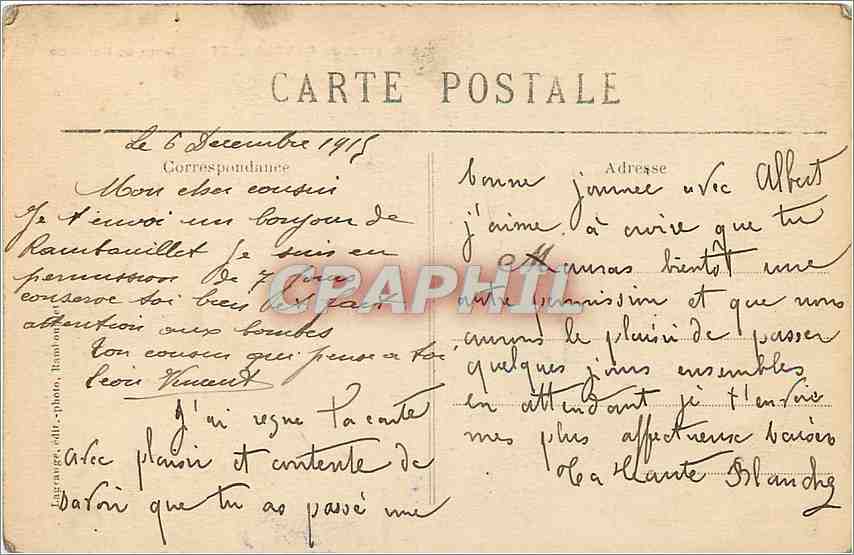 CARTE POSTALE
Le 6 Decembre 1915
Correspondance
Mon cher cousin
Je t envoi un bonjour de
Rambouillet Je suis en
permission de 7 jours
conserve toi bien fait
attention aux bombes
Ton cousin qui pense a toi
Léon Vincent
J'ai reçue ta carte
avec plaisir et contente de
savoir que tu as passé une
Adresse
bonne journee avec Albert
j'aime à croire que tu
M auras bientot une
autre permission et que nous
aurons le plaisir de passer
quelques jours ensembles
en attendant je t'envoie
mes plus affectueux baisers
Ta Tante Blanche
Lagrange, édit.-photo, Rambouillet
CPAPHIL